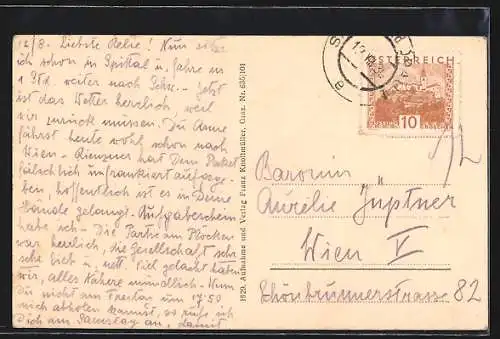 12/8. Liebste Relie! Nun sitze
ich schon in Spittal u. fahre in
1 Std. weiter nach Schw. – Jetzt
ist das Wetter herrlich, weil
wir zurück müssen. Du Arme
fährst heute wohl schon nach
Wien. – hat Dein Paket
fälschlich unfrankiert aufgege-
ben, hoffentlich ist es in Deine
Hände gelangt. Aufgabeschein
habe ich – Die Partie am Plöcken
war herrlich, die Gesellschaft sehr
sehr lieb u. nett. Viel gelacht haben
wir, alles Nähere mündlich. Wenn
Du nicht am Freitag um 19.50
mich abholen kannst, so rufe ich
Dich am Samstag an, damit
1629. Aufnahme und Verlag Franz Knollmüller, Graz. Nr. 635/101
ÖSTERREICH
10
Baronin
Aurelie Jüptner
Wien V
Schönbrunnerstrasse 82